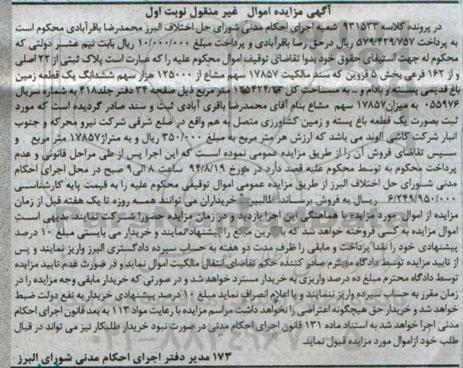 آگهی مزایده اموال غیر منقول نوبت اول
در پرونده کلاسه ۹۳۱۵۳۳ شعبه اجرای احکام مدنی شورای حل اختلاف البرز محمدرضا باقرآبادی محکوم است
به پرداخت ۵۷۹/۴۲۹/۷۵۷ ریال درحق رضا باقرآبادی و پرداخت مبلغ ۱۰/۰۰۰/۰۰۰ ریال بابت نیم عشر دولتی که
محکوم له جهت استیفای حقوق خود بدوا تقاضای توقیف اموال محکوم علیه را که عبارت است پلاک ثبتی از ۲۲ اصلی
و از ۱۶۲ فرعی بخش ۵ قزوین که سند مالکیت ۱۷۸۵۷ سهم مشاع از ۱۲۵۰۰۰ هزار سهم ششدانگ یک قطعه زمین
باغ قدیمی پسته و بادام و .. به مساحت کل مترمربع ذیل صفحه ۲۴ دفتر جلد ۴۱۸ به شماره سریال
۰۵۵۹۷۶ به میزان ۱۷۸۵۷ سهم مشاع بنام آقای محمدرضا باقری آبادی ثبت و سند صادر گردیده است که مورد
ثبت بصورت یک قطعه باغ پسته و زمین کشاورزی متصل به هم واقع در ضلع شرقی شرکت نیرو محرکه و جنوب
انبار شرکت کاشی الوند می باشد که ارزش هر متر مربع به مبلغ ۳۵۰/۰۰۰ ریال و به متراژ ۱۷۸۵۷ متر مربع و
سپس تقاضای فروش آن را از طریق مزایده عمومی نموده است که این اجرا پس از طی مراحل قانونی و عدم
پرداخت محکوم به توسط محکوم علیه قصد دارد در مورخ ۹۴/۸/۱۹ ساعت ۸ الی ۹ صبح در محل اجرای احکام
مدنی شورای حل اختلاف البرز از طریق مزایده عمومی اموال توقیفی محکوم علیه را به قیمت پایه کارشناسی
۶/۲۴۹/۹۵۰/۰۰۰ ریال به فروش برساند. خریداران می توانند همه روزه تا یک هفته قبل از زمان
مزایده از اموال مورد مزایده با هماهنگی این اجرا بازدید و در زمان مزایده حضورا شرکت نمایند. بدیهی است
اموال مزایده به کسی فروخته خواهد شد که بالاترین مبلغ را پیشنهاد نمایند و خریدار می بایستی مبلغ ۱۰ درصد
پیشنهادی خود را نقد پرداخت و مابقی را ظرف مدت دو هفته به حساب سپرده دادگستری البرز واریز نمایند و پس
از تایید مزایده توسط دادگاه محترم صادر کننده حکم تقاضای انتقال مالکیت اموال نمایند و در صورت عدم تایید مزایده
توسط دادگاه محترم مبلغ ده درصد واریزی به خریدار مسترد خواهد شد و در صورتی که خریدار مابقی وجه مزایده را در
زمان مقرر به حساب سپرده واریز ننمایند و یا اعلام انصراف نماید مبلغ ۱۰ درصد پیشنهادی خریدار به نفع دولت ضبط
خواهد شد و خریدار حق هیچگونه اعتراضی را نخواهد داشت مراسم مزایده با رعایت مواد ۱۱۳ به بعد قانون اجرای احکام
مدنی اجرا خواهد شد به استناد ماده ۱۳۱ قانون اجرای احکام مدنی در صورت نبود خریدار طلبکار نیز می تواند در قبال
طلب خود از اموال مورد مزایده قبول نماید.
۱۷۳ مدیر دفتر اجرای احکام مدنی شورای البرز